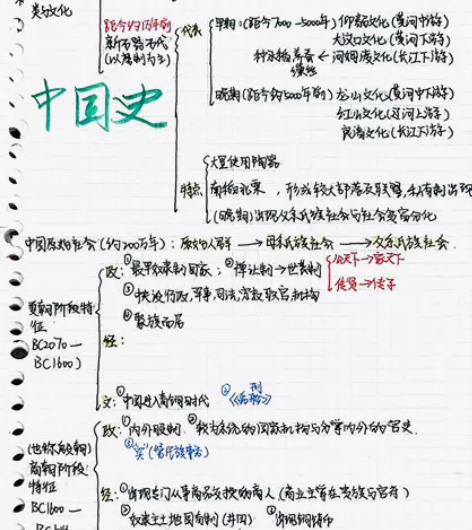 类与文化
距今约1万年前
新石器时代
(以磨制为主)
代表
早期:(距今7000-5000年)仰韶文化(黄河中游)
大汶口文化(黄河下游)
种水稻养蚕缫丝←河姆渡文化(长江下游)
晚期(距今约5000年前)龙山文化(黄河中下游)
红山文化(辽河上游)
良渚文化(长江下游)
中国史
特点
大量使用陶器
南稻北粟,形成较大部落及联盟,私有制出现
(晚期)出现父系氏族社会与社会贫富分化
中国原始社会(约200万年):原始人群→母系氏族社会→父系氏族社会
夏朝阶段特征
BC2070—
BC1600)
政:①最早奴隶制国家;②禅让制→世袭制
公天下→家天下
传贤→传子
③
④聚族而居
经:
文:①中国进入青铜时代 ②
刑
(也称殷朝)
商朝阶段
特征
BC1600—
政:①内外服制 ②较为系统的国家机构与分掌内外的官吏
③
经:①出现专门从事商品交换的商人(商业主管在贵族与官府)
②奴隶主土地国有制(井田) ③出现铜铸币